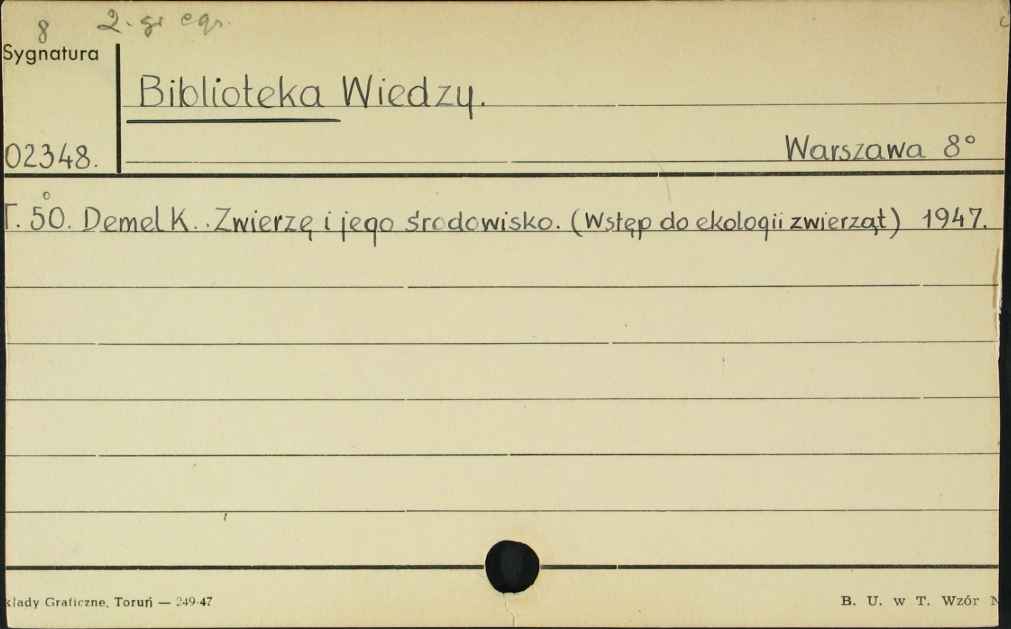 8 2-gi egz.
Sygnatura
Biblioteka Wiedzy.
02348. Warszawa 8°
T. 50. Demel K. Zwierzę i jego środowisko. (Wstęp do ekologii zwierząt) 1947.
kłady Graficzne, Toruń — 249-47 B. U. w T. Wzór N